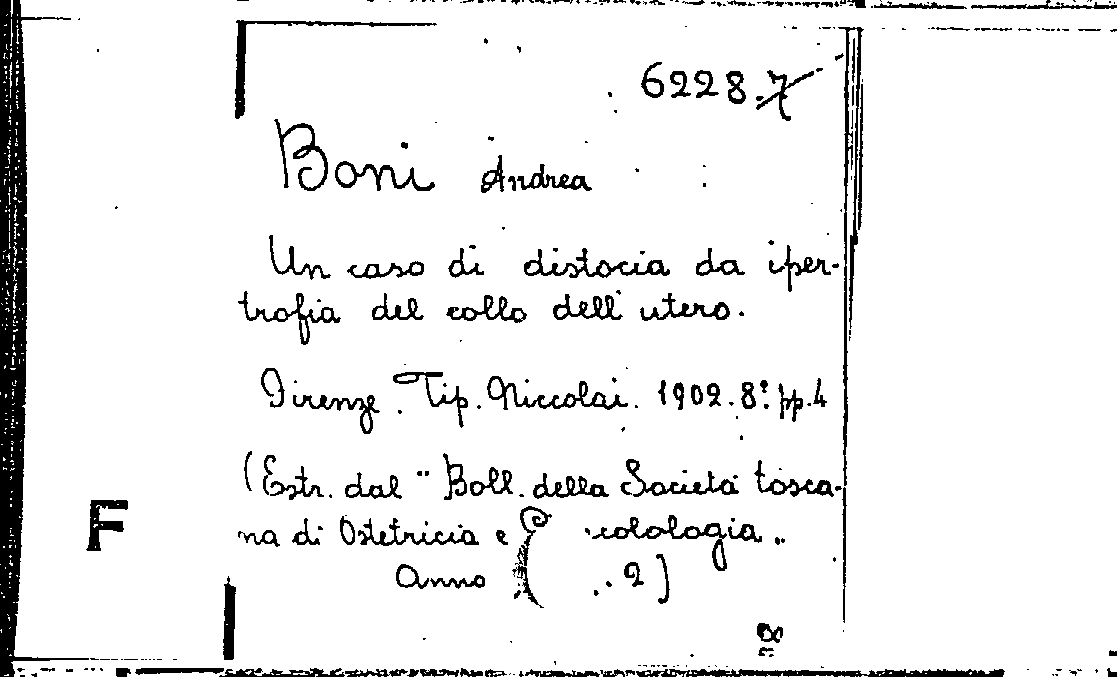 6228.7
Boni Andrea
Un caso di distocia da iper-
trofia del collo dell'utero.
Firenze. Tip. Niccolai. 1902. 8º. pp. 4
(Estr. dal "Boll. della Società tosca-
na di Ostetricia e
Anno 2)
F